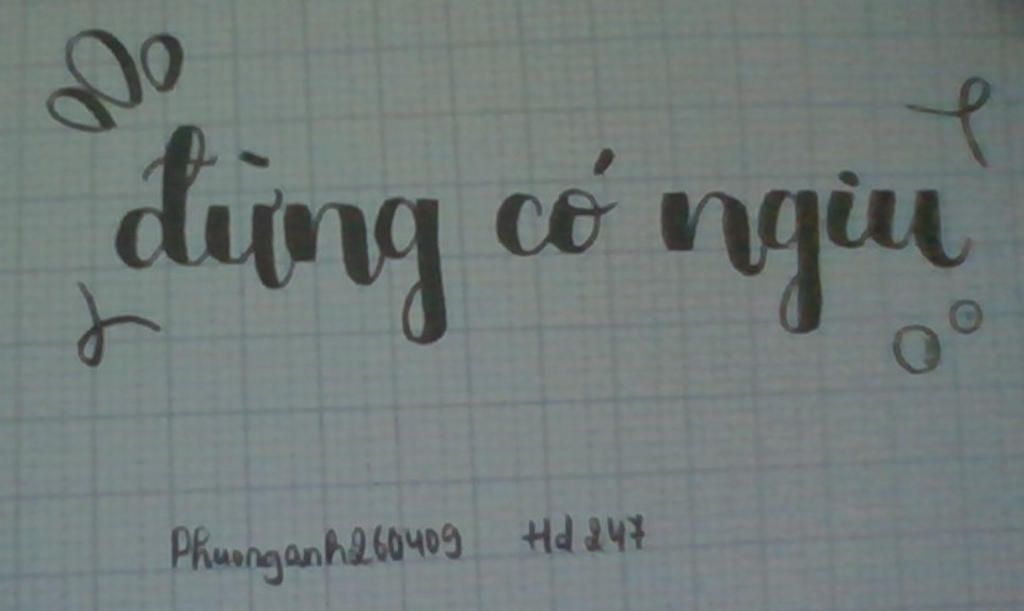 đừng có ngiu
Phuonganh260409 Hd247